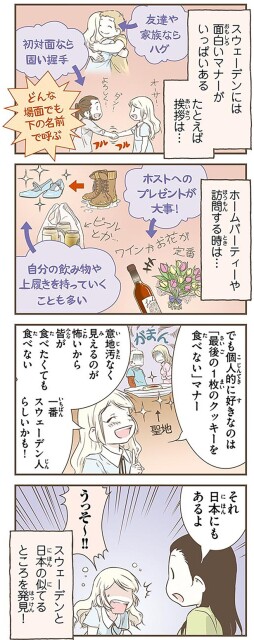 スウェーデンには
面白いマナーが
いっぱいある
たとえば
挨拶は…
友達や
家族なら
ハグ
初対面なら
固い握手
どんな
場面でも
下の名前
で呼ぶ
フル
フル
ホームパーティーや
訪問する時は…
ホストへの
プレゼントが
大事!
ワインかお花が
定番
ビール
とか…
自分の飲み物や
上履きを持っていく
ことも多い
でも個人的に好きなのは
「最後の1枚のクッキーを
食べない」マナー
かまん
聖地
意地汚なく
見えるのが
怖いから
皆が
食べたくても
食べない
一番
スウェーデン人
らしいかも!
それ
日本にも
あるよ
うっそ〜!!
スウェーデンと
日本の似てる
ところを発見!